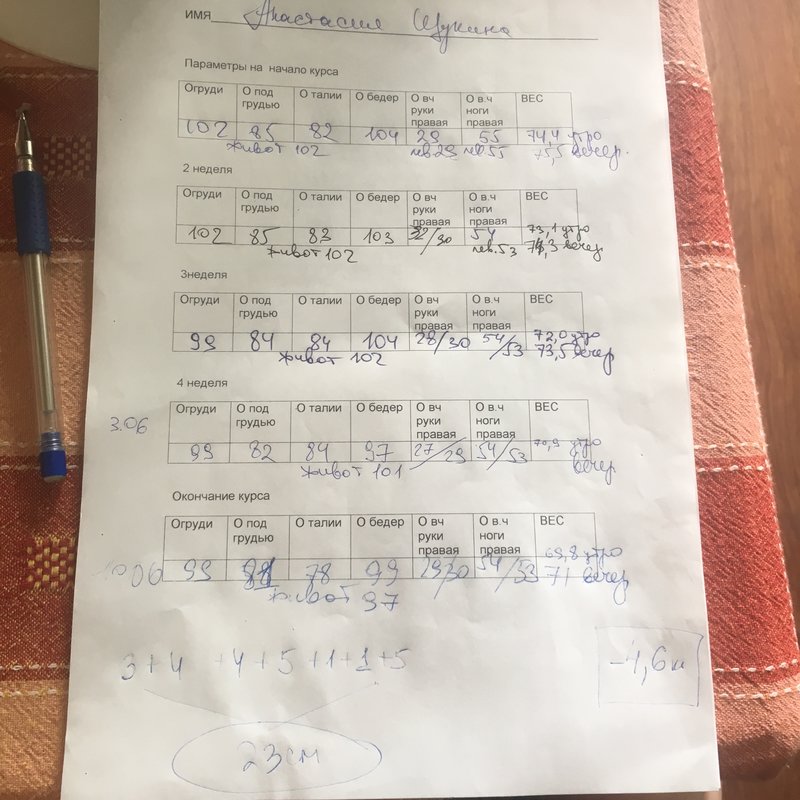 ИМЯ Анастасия Щукина
Параметры на начало курса
Огруди О под грудью О талии О бедер О вч руки правая О в.ч ноги правая ВЕС
102 85 82 104 29 55 74,4 утро
живот 102 лев.29 лев.55 75,5 вечер.
2 неделя
Огруди О под грудью О талии О бедер О вч руки правая О в.ч ноги правая ВЕС
102 85 83 103 /30 54 73,1 утро
живот 102 лев.53 74,3 вечер
3неделя
Огруди О под грудью О талии О бедер О вч руки правая О в.ч ноги правая ВЕС
99 84 84 104 28/30 54/53 72,0 утро
живот 102 73,5 вечер
4 неделя
3.06
Огруди О под грудью О талии О бедер О вч руки правая О в.ч ноги правая ВЕС
99 82 84 97 27/29 54/53 70,9 утро
живот 101 вечер
Окончание курса
Огруди О под грудью О талии О бедер О вч руки правая О в.ч ноги правая ВЕС
10.06 99 81 78 99 29/30 54/53 69,8 утро
живот 97 71 вечер
3+4+4+5+1+1+5
-4,6к
23см